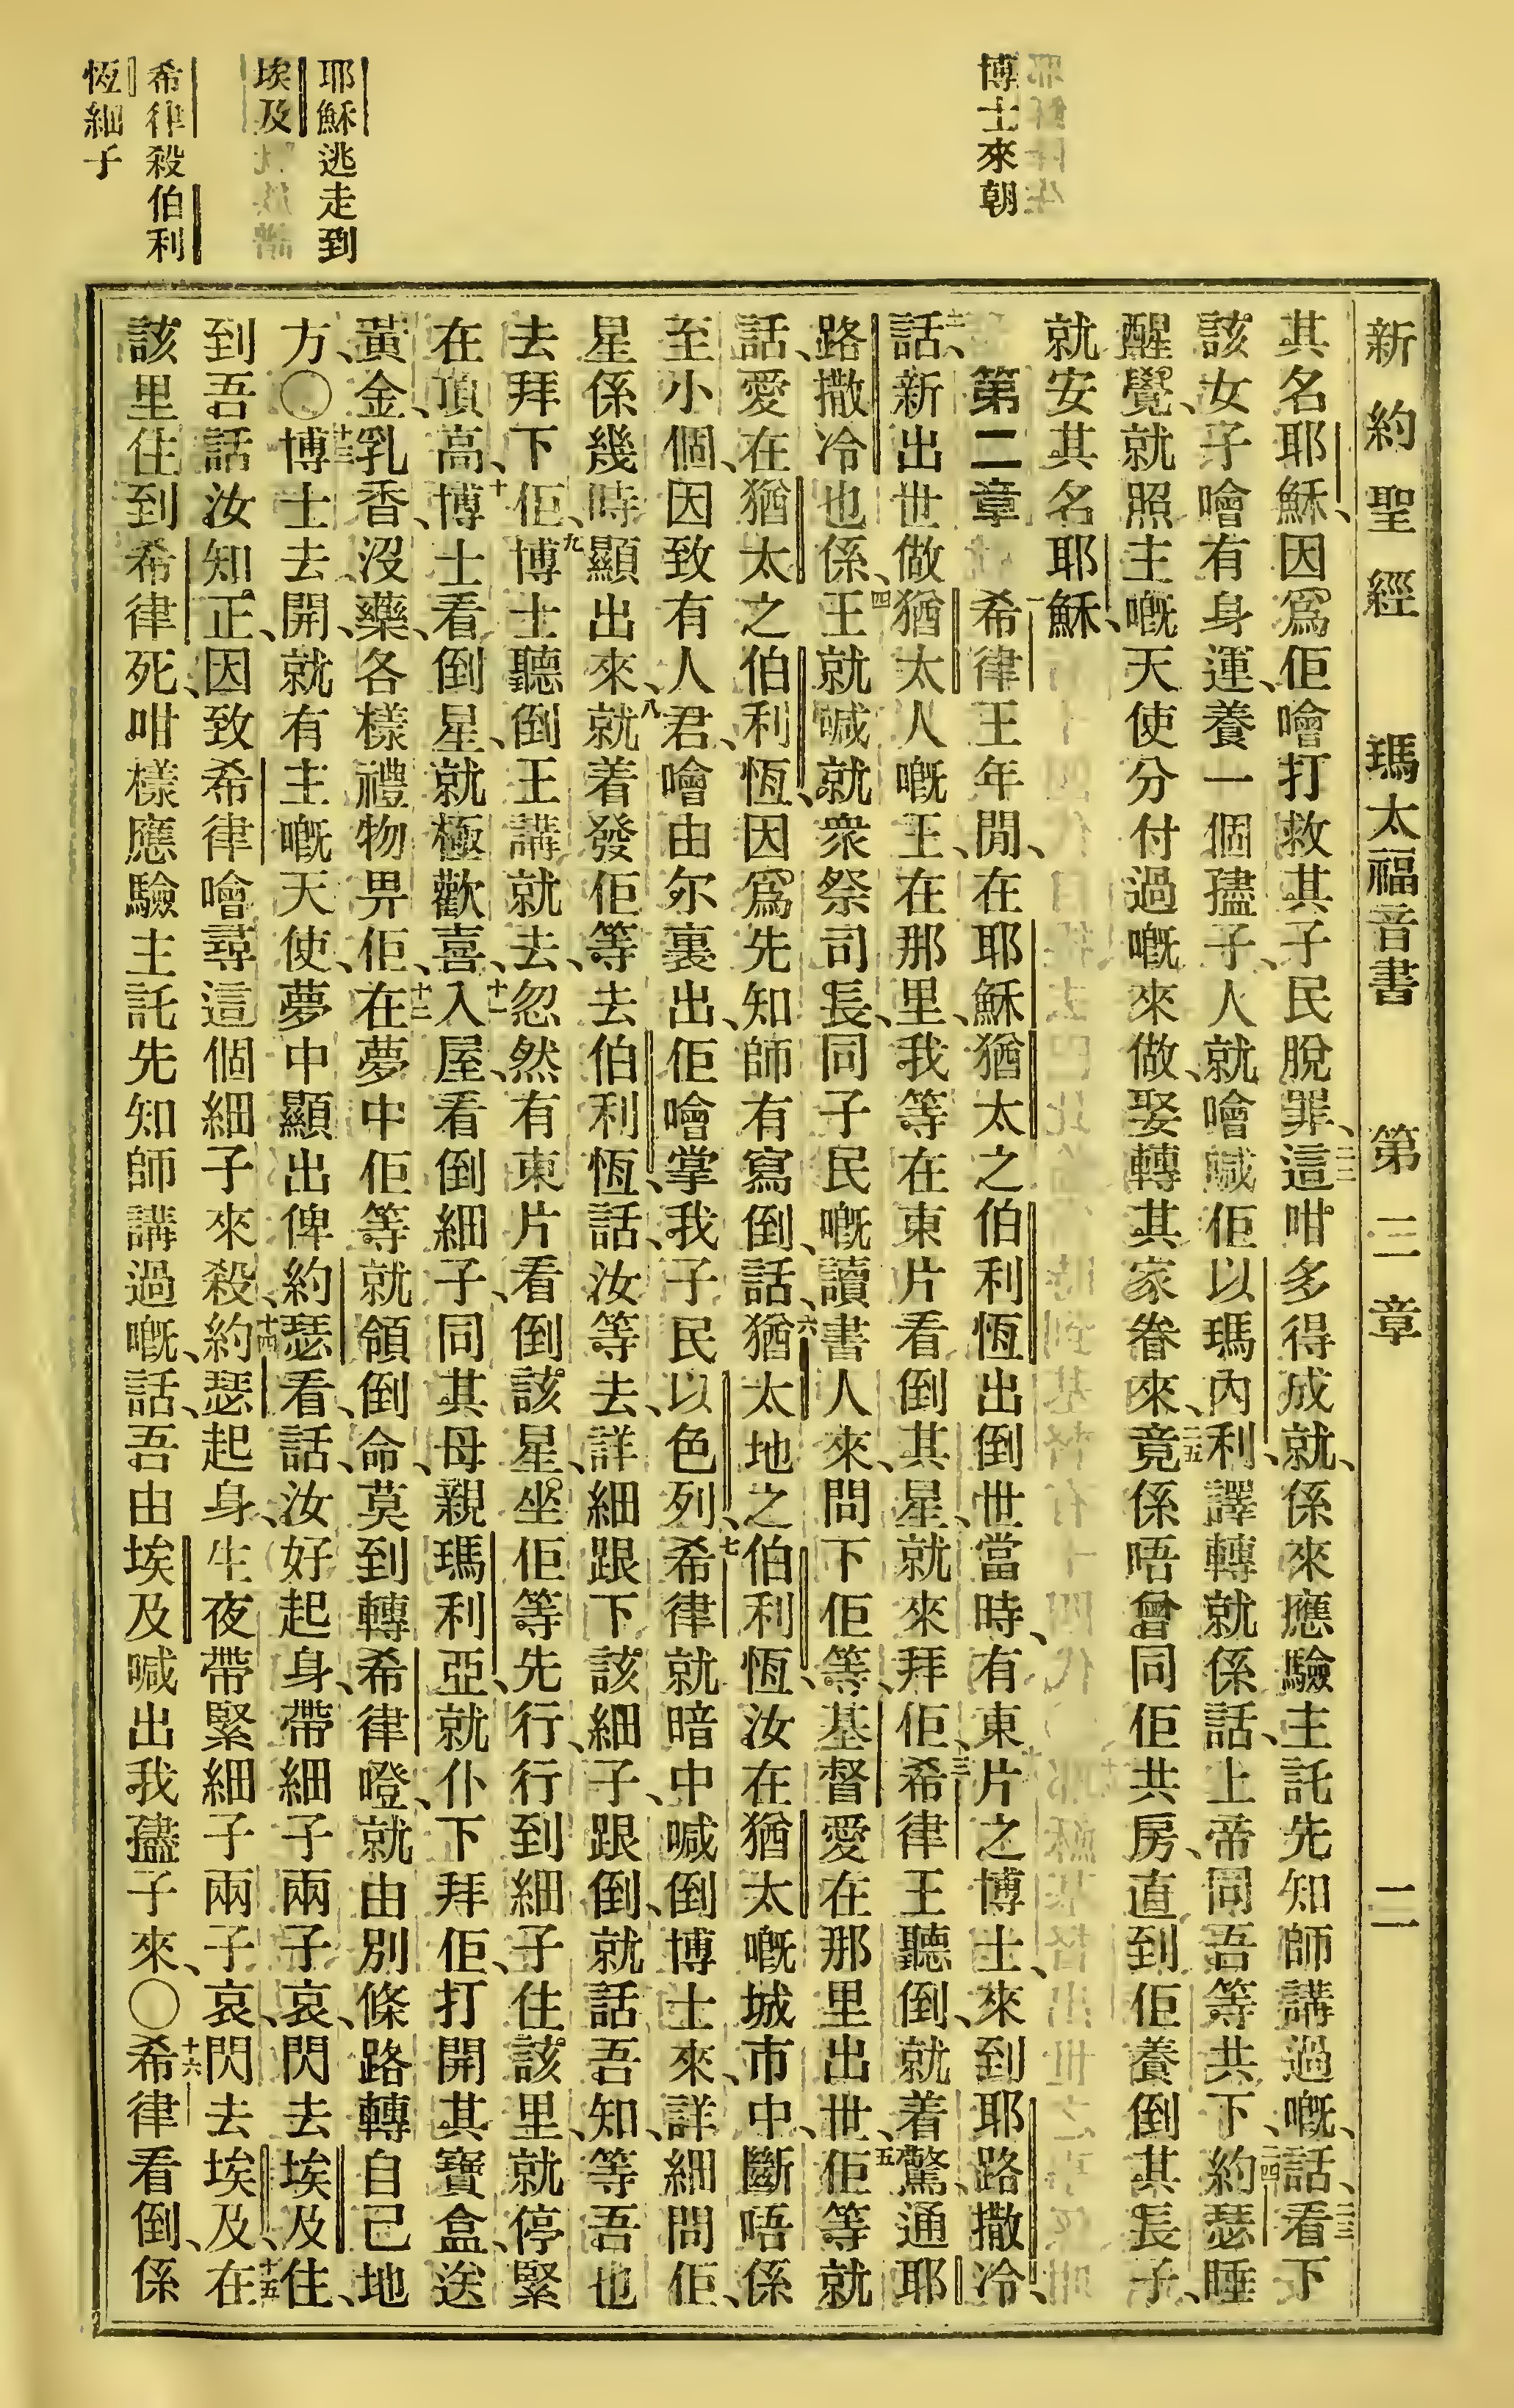 新約聖經　瑪太福音書　第二章　二
博士來朝
耶穌逃走到
埃及
希律殺伯利
恆細子
其名耶穌、因爲佢噲打救其子民脫罪、二二這咁多得成就、係來應驗主託先知師講過嘅、話、二三看下
該女子噲有身運、養一個孻子、人就噲喊佢以瑪內利、譯轉就係話、上帝同吾等共下、二四約瑟睡
醒覺、就照主嘅天使分付過嘅來做、娶轉其家眷來、二五竟係唔曾同佢共房、直到佢養倒其長子、
就安其名耶穌、
第二章　一希律王年間、在耶穌猶太之伯利恆出倒世當時、有東片之博士、來到耶路撒冷、
二話、新出世做猶太人嘅王、在那里、我等在東片看倒其星、就來拜佢、三希律王聽倒、就着驚、通耶
路撒冷也係、四王就喊就衆祭司長、同子民嘅讀書人來、問下佢等、基督愛在那里出世、五佢等就
話、愛在猶太之伯利恆、因爲先知師有寫倒、話、六猶太地之伯利恆、汝在猶太嘅城市中、斷唔係
至小個、因致有人君、噲由尔裏出、佢噲掌我子民以色列、七希律就暗中喊倒博士來、詳細問佢、
星係幾時顯出來、八就着發佢等去伯利恆、話、汝等去、詳細跟下該細子、跟倒、就話吾知、等吾也
去拜下佢、九博士聽倒王講就去、忽然有東片看倒該星、坐佢等先行、行到細子住該里、就停緊
在頂高、十博士看倒星、就極歡喜、十一入屋、看倒細子、同其母親瑪利亞、就仆下拜佢、打開其寶盒、送
黃金、乳香、沒藥、各樣禮物畀佢、十二在夢中佢等就領倒命、莫到轉希律嶝、就由別條路轉自己地
方、〇十三博士去開、就有主嘅天使、夢中顯出俾約瑟看、話、汝好起身、帶細子兩子哀、閃去埃及住、
到吾話汝知正、因致希律噲尋這個細子來殺、十四約瑟起身、生夜帶緊細子兩子哀、閃去埃及、十五在
該里住到希律死、咁樣應驗主託先知師講過嘅、話、吾由埃及喊出我孻子來、〇十六希律看倒、係